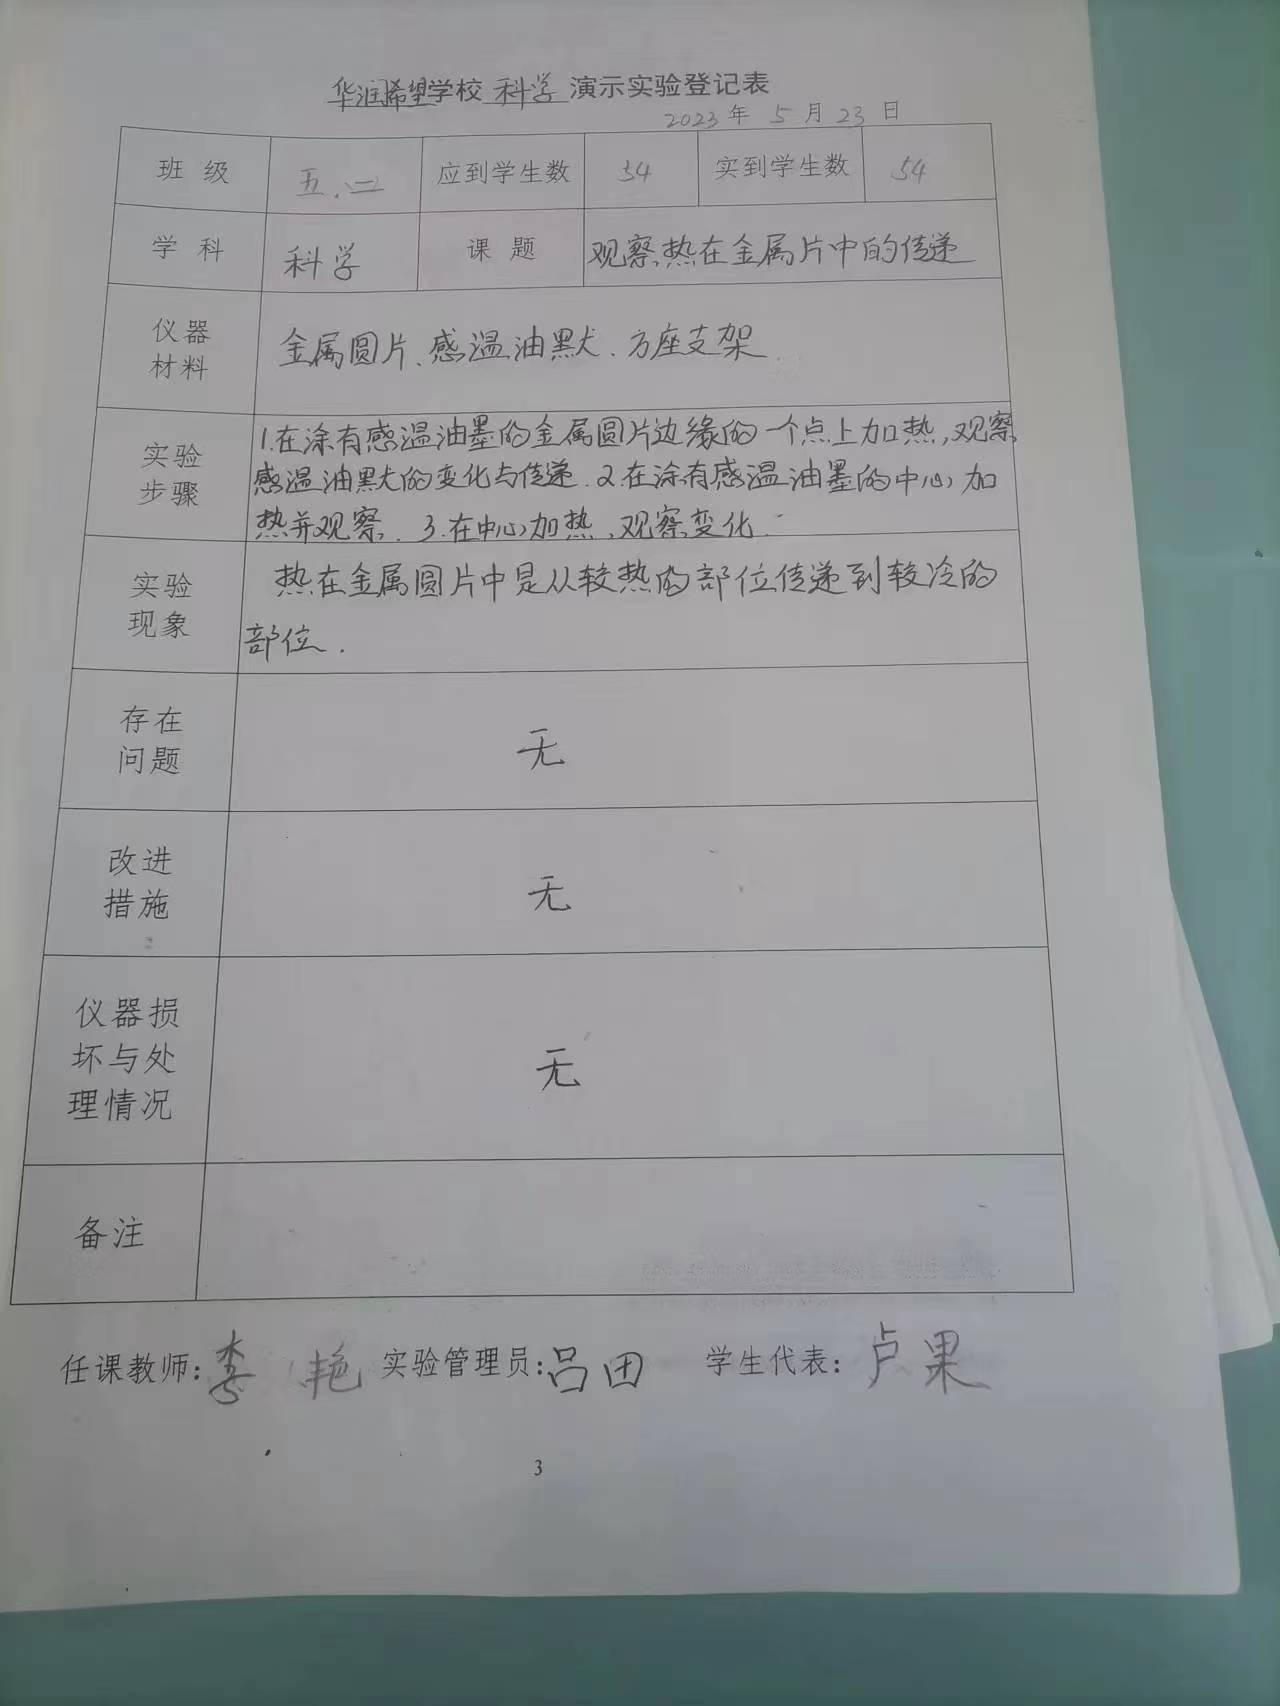 华润希望学校 科学 演示实验登记表
2023 年 5 月 23 日
班 级 五.二 应到学生数 54 实到学生数 54
学 科 科学 课 题 观察热在金属片中的传递
仪器
材料
金属圆片、感温油默、方座支架
实验
步骤
1.在涂有感温油墨的金属圆片边缘的一个点上加热,观察
感温油默的变化与传递.2.在涂有感温油墨的中心加
热并观察.3.在中心加热,观察变化.
实验
现象
热在金属圆片中是从较热的部位传递到较冷的
部位.
存在
问题
无
改进
措施
无
仪器损
坏与处
理情况
无
备注
任课教师:李艳 实验管理员:吕田 学生代表:卢果
3